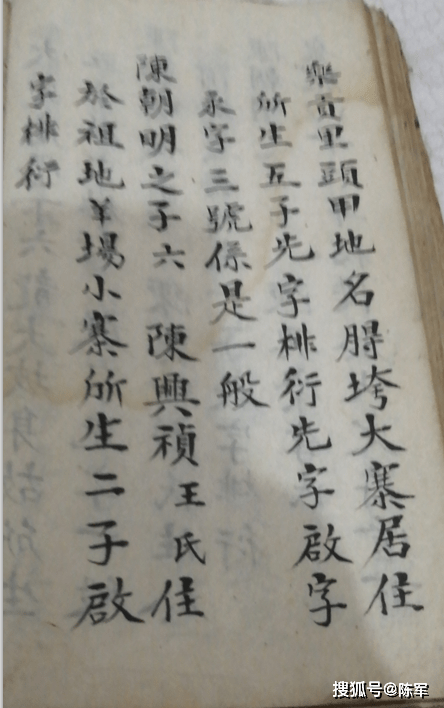 樂貢里頭甲地名腭垮大寨居住
所生五子先字排衍先字啟字
永字三號係是一般
陳朝明之子六陳興禎王氏住
於祖地羊場小寨所生二子啟
字排衍
搜狐号@陈军